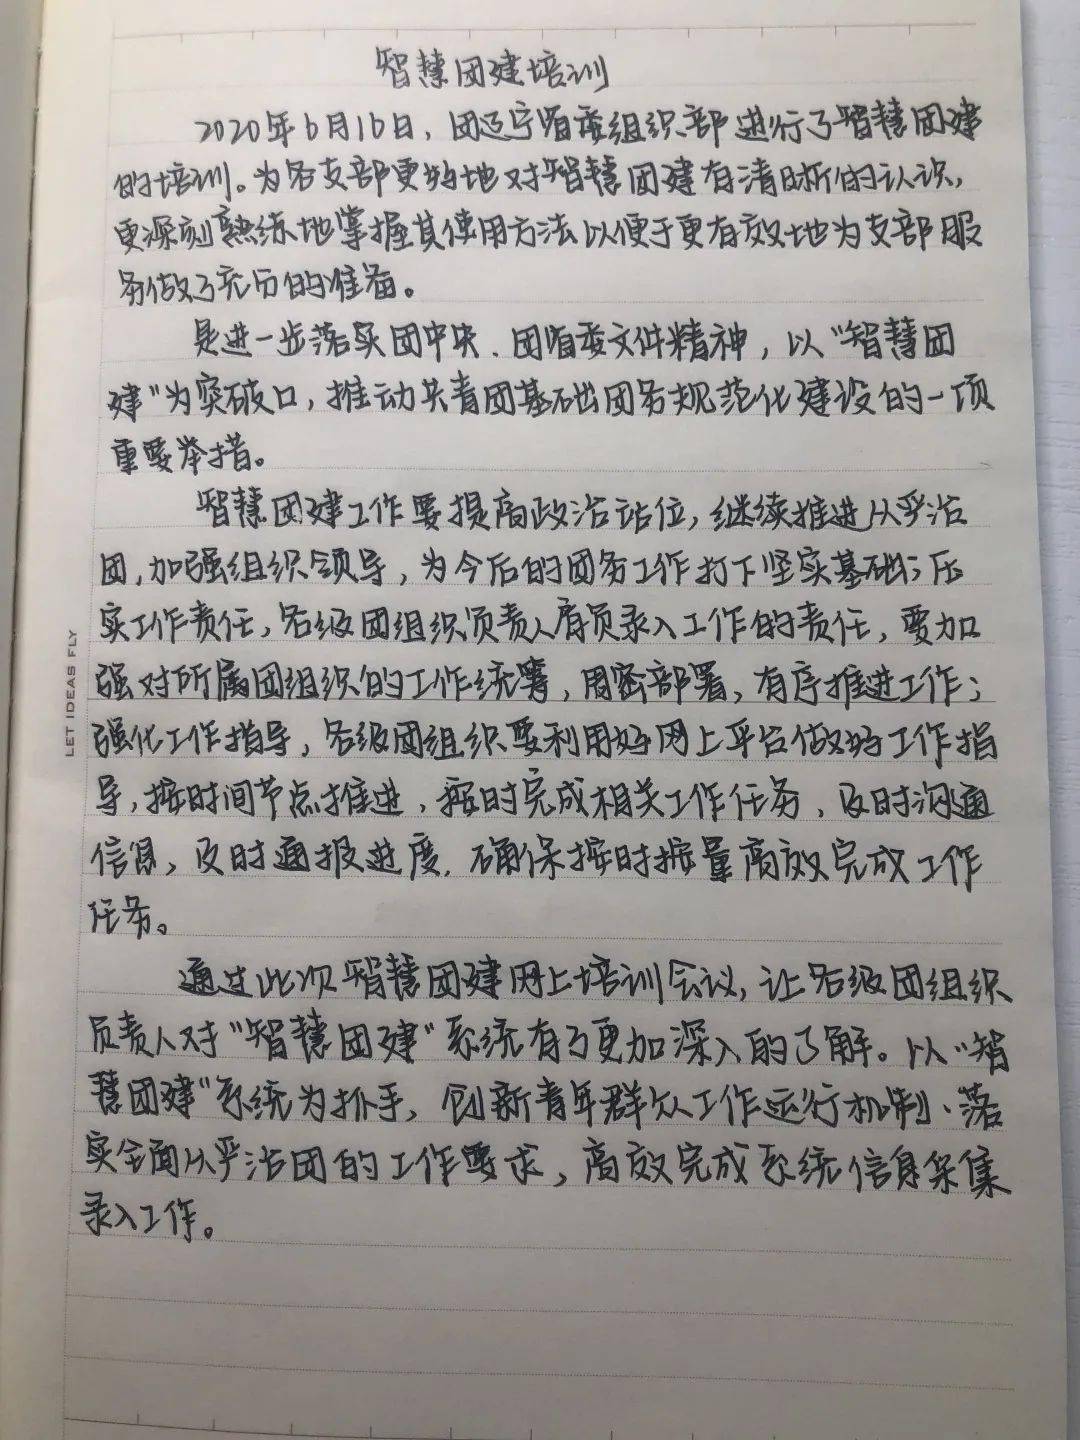 智慧团建培训
2020年6月16日，团辽宁省委组织部进行了智慧团建
的培训。为各支部更好地对智慧团建有清晰的认识，
更深刻熟练地掌握其使用方法以便于更有效地为支部服
务做了充分的准备。
是进一步落实团中央、团省委文件精神，以“智慧团
建”为突破口，推动共青团基础团务规范化建设的一项
重要举措。
智慧团建工作要提高政治站位，继续推进从严治
团，加强组织领导，为今后的团务工作打下坚实基础；压
实工作责任，各级团组织负责人肩负录入工作的责任，要加
强对所属团组织的工作统筹，周密部署，有序推进工作；
强化工作指导，各级团组织要利用好网上平台做好工作指
导，按时间节点推进，按时完成相关工作任务，及时沟通
信息，及时通报进度，确保按时按量高效完成工作
任务。
通过此次智慧团建网上培训会议，让各级团组织
负责人对“智慧团建”系统有了更加深入的了解。以“智
慧团建”系统为抓手，创新青年群众工作运行机制、落
实全面从严治团的工作要求，高效完成系统信息采集
录入工作。
LET IDEAS FLY